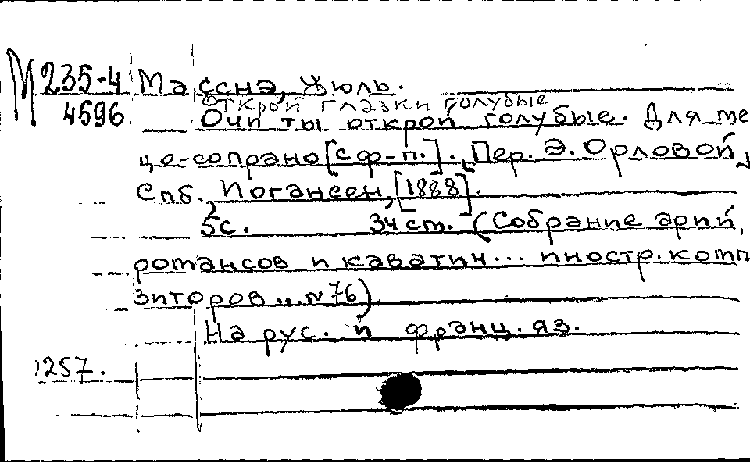 М 235-4 Массна, Жюль.
Открой глазки голубые
4596 Очи ты открой голубые. Для ме
цо-сопрано [с ф-п.]. Пер. Э. Орловой,
Спб., Иогансен, [1888].
5с. 34 ст. (Собрание арий,
романсов и каватин... иностр. комп
зиторов... № 76)
На рус. и франц. яз.
1257.